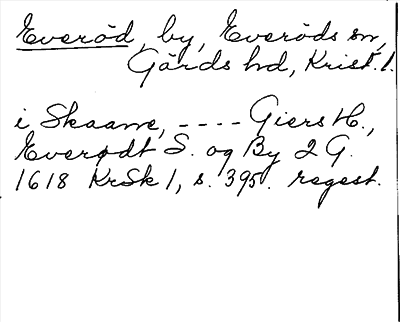 Everöd, by, Everöds sn,
Gärds hd, Krist. l.
i Skaane, ---- Giers H.,
Everødt S. og By 2 G.
1618 KrSk 1, s. 395. regest.